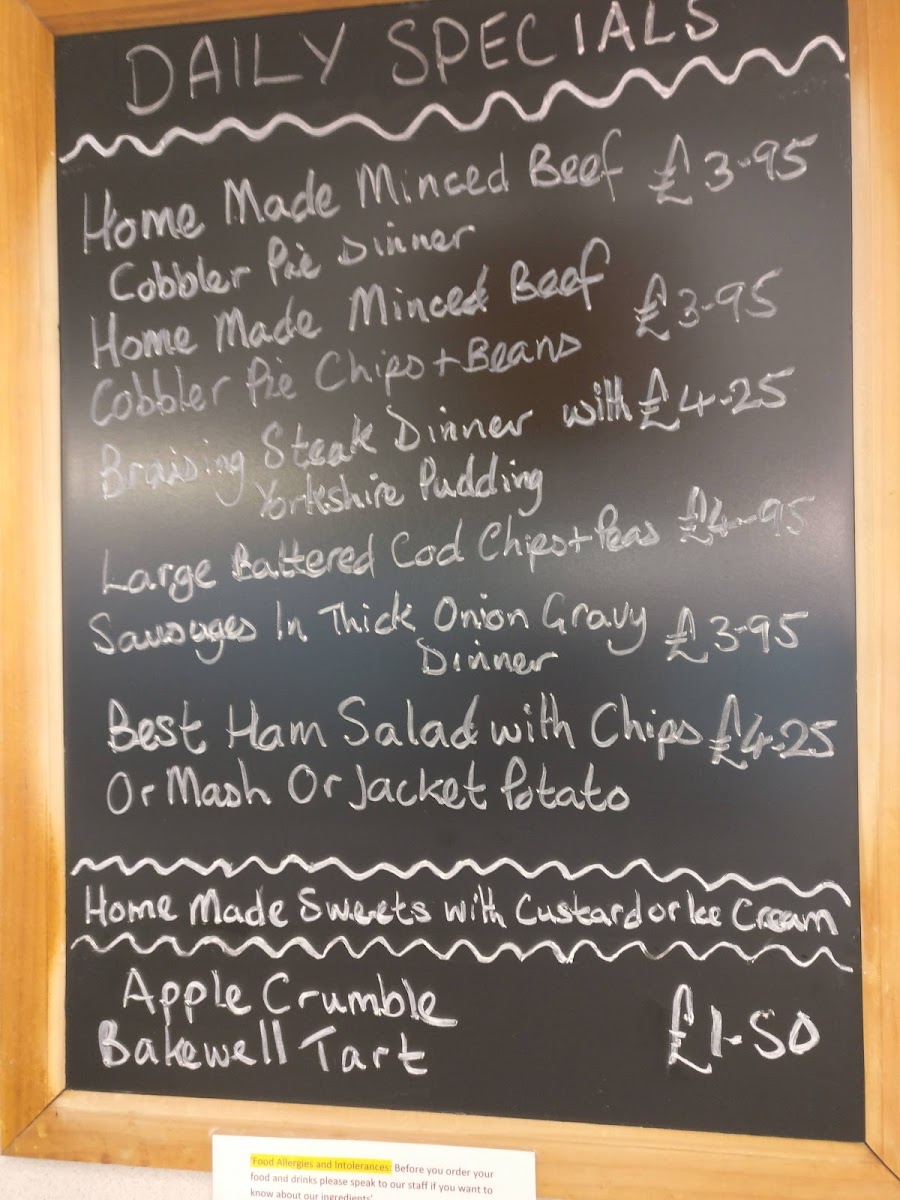 DAILY SPECIALS
Home Made Minced Beef £3-95
Cobbler Pie Dinner
Home Made Minced Beef
Cobbler Pie Chips + Beans £3-95
Braising Steak Dinner with £4-25
Yorkshire Pudding
Large Battered Cod Chips + Peas £4-95
Sausages In Thick Onion Gravy £3-95
Dinner
Best Ham Salad with Chips £4.25
Or Mash Or Jacket Potato
Home Made Sweets with Custard or Ice Cream
Apple Crumble
Bakewell Tart £1-50
'Food Allergies and Intolerances: Before you order your
food and drinks please speak to our staff if you want to
know about our ingredients'